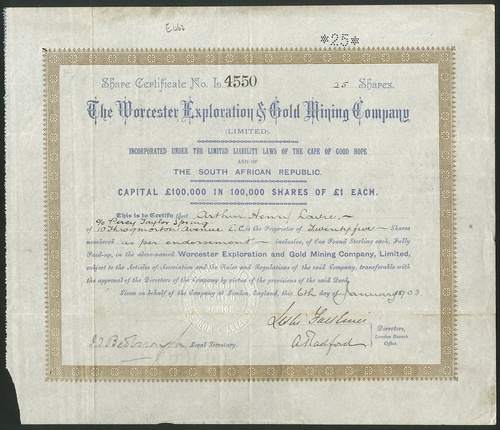 *25*
Share Certificate No. L 4550 25 Shares.
The Worcester Exploration & Gold Mining Company
(LIMITED)
INCORPORATED UNDER THE LIMITED LIABILITY LAWS OF THE CAPE OF GOOD HOPE
AND OF
THE SOUTH AFRICAN REPUBLIC.
CAPITAL £100,000 IN 100,000 SHARES OF £1 EACH.
This is to Certify that Arthur Henry Lawrie
c/o Percy Taylor Spring
of 10 Throgmorton Avenue E.C. is the Proprietor of Twenty five Shares
numbered as per endorsement inclusive, of One Pound Sterling each, Fully
Paid-up, in the above-named Worcester Exploration and Gold Mining Company, Limited,
subject to the Articles of Association and the Rules and Regulations of the said Company, transferable with
the approval of the Directors of the Company by virtue of the provisions of the said Deed.
Given on behalf of the Company at London, England, this 6th day of January 1903
OFFICE
Directors,
London Branch
Office.
Local Secretary.
A Radford